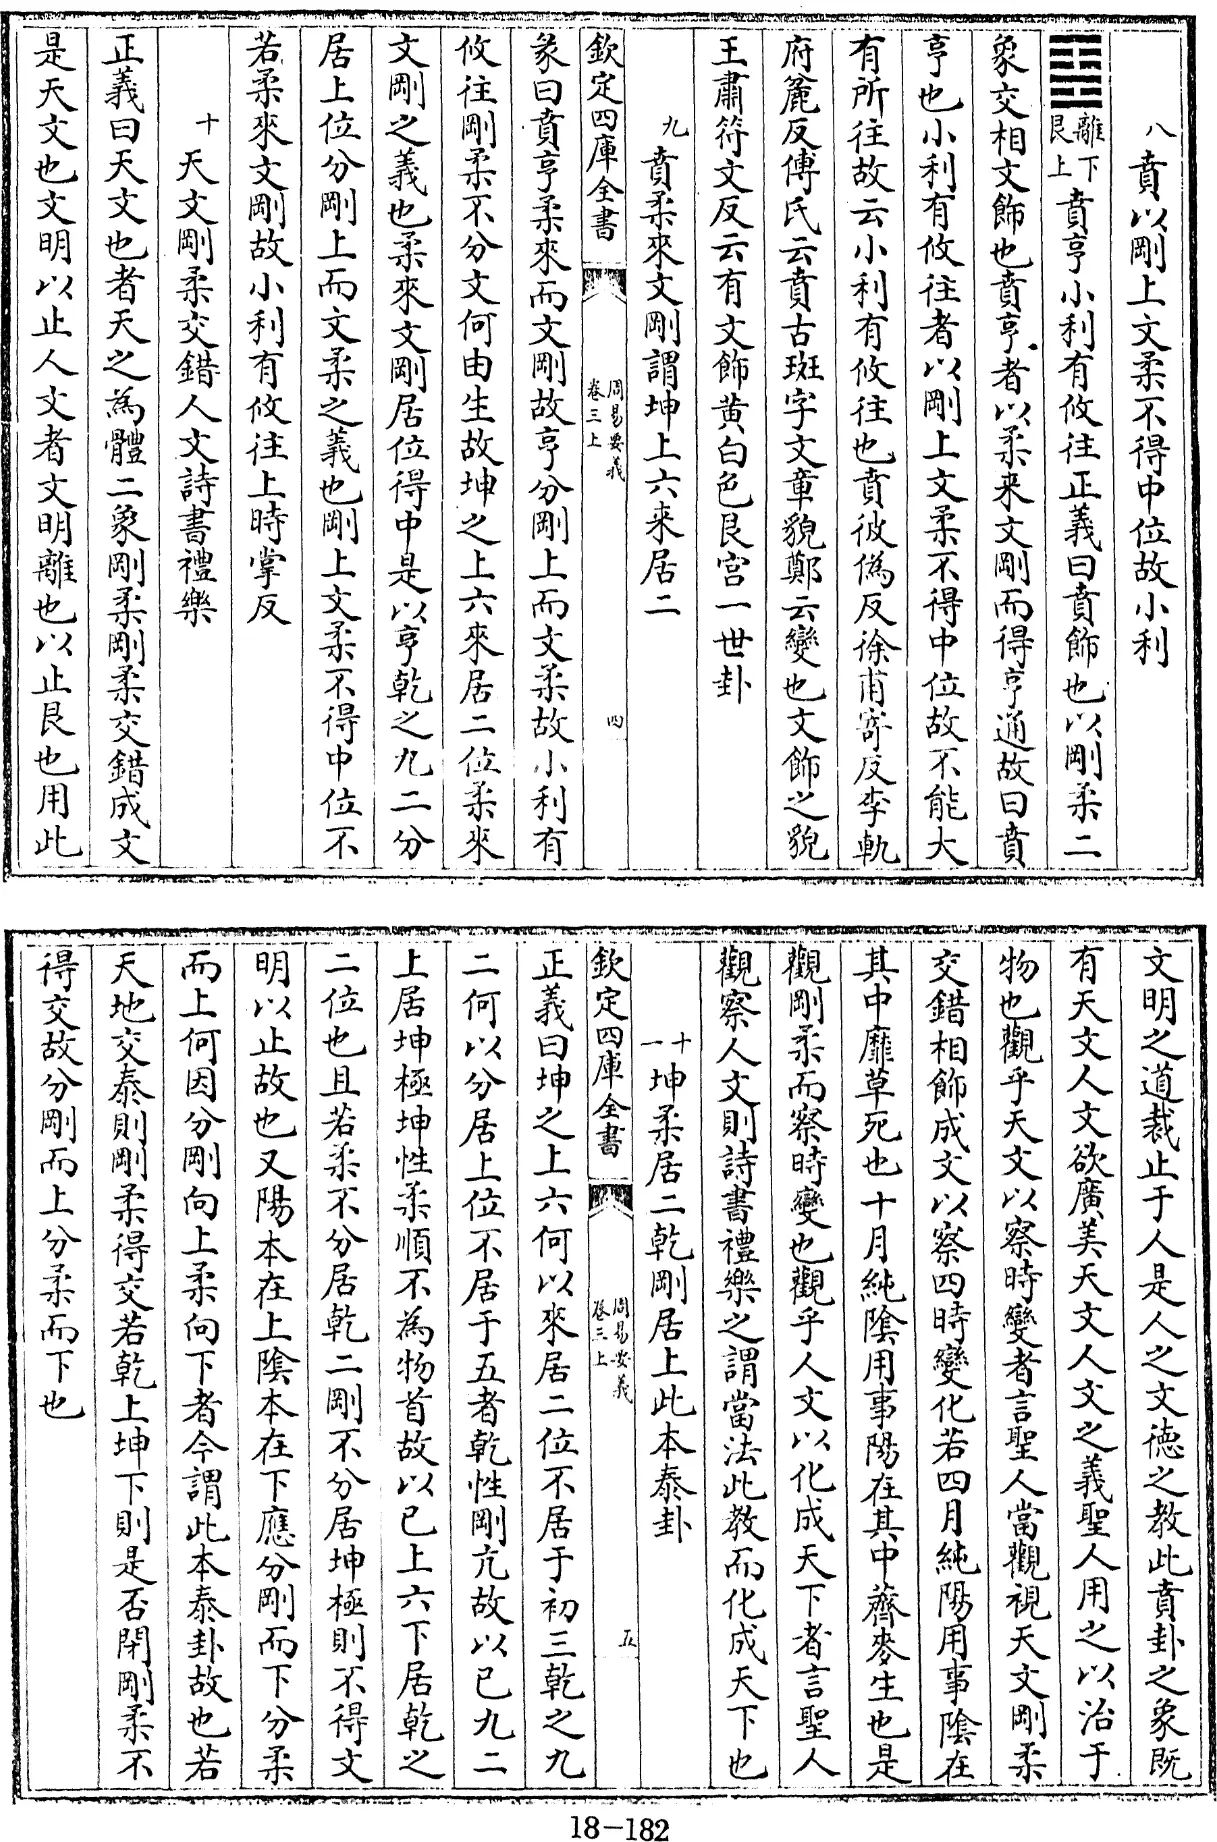 八賁以剛上文柔不得中位故小利
離下艮上賁亨小利有攸往正義曰賁飾也以剛柔二
象交相文飾也賁亨者以柔來文剛而得亨通故曰賁
亨也小利有攸往者以剛上文柔不得中位故不能大
有所往故云小利有攸往也賁彼偽反徐甫寄反李軌
府麄反傅氏云賁古斑字文章貌鄭云變也文飾之貌
王肅符文反云有文飾黄白色艮宫一世卦
九賁柔來文剛謂坤上六来居二
欽定四庫全書
周易要義
卷三上
四
彖曰賁亨柔來而文剛故亨分剛上而文柔故小利有
攸往剛柔不分文何由生故坤之上六來居二位柔來
文剛之義也柔來文剛居位得中是以亨乾之九二分
居上位分剛上而文柔之義也剛上文柔不得中位不
若柔來文剛故小利有攸往上時掌反
十天文剛柔交錯人文詩書禮樂
正義曰天文也者天之為體二象剛柔剛柔交錯成文
是天文也文明以止人文者文明離也以止艮也用此
文明之道裁止于人是人之文徳之教此賁卦之象既
有天文人文欲廣美天文人文之義聖人用之以治于
物也觀乎天文以察時變者言聖人當觀視天文剛柔
交錯相飾成文以察四時變化若四月純陽用事陰在
其中靡草死也十月純陰用事陽在其中薺麥生也是
觀剛柔而察時變也觀乎人文以化成天下者言聖人
觀察人文則詩書禮樂之謂當法此教而化成天下也
十一坤柔居二乾剛居上此本泰卦
欽定四庫全書
周易要義
卷三上
五
正義曰坤之上六何以來居二位不居于初三乾之九
二何以分居上位不居于五者乾性剛亢故以已九二
上居坤極坤性柔順不為物首故以已上六下居乾之
二位也且若柔不分居乾二剛不分居坤極則不得文
明以止故也又陽本在上陰本在下應分剛而下分柔
而上何因分剛向上柔向下者今謂此本泰卦故也若
天地交泰則剛柔得交若乾上坤下則是否閉剛柔不
得交故分剛而上分柔而下也
18-182